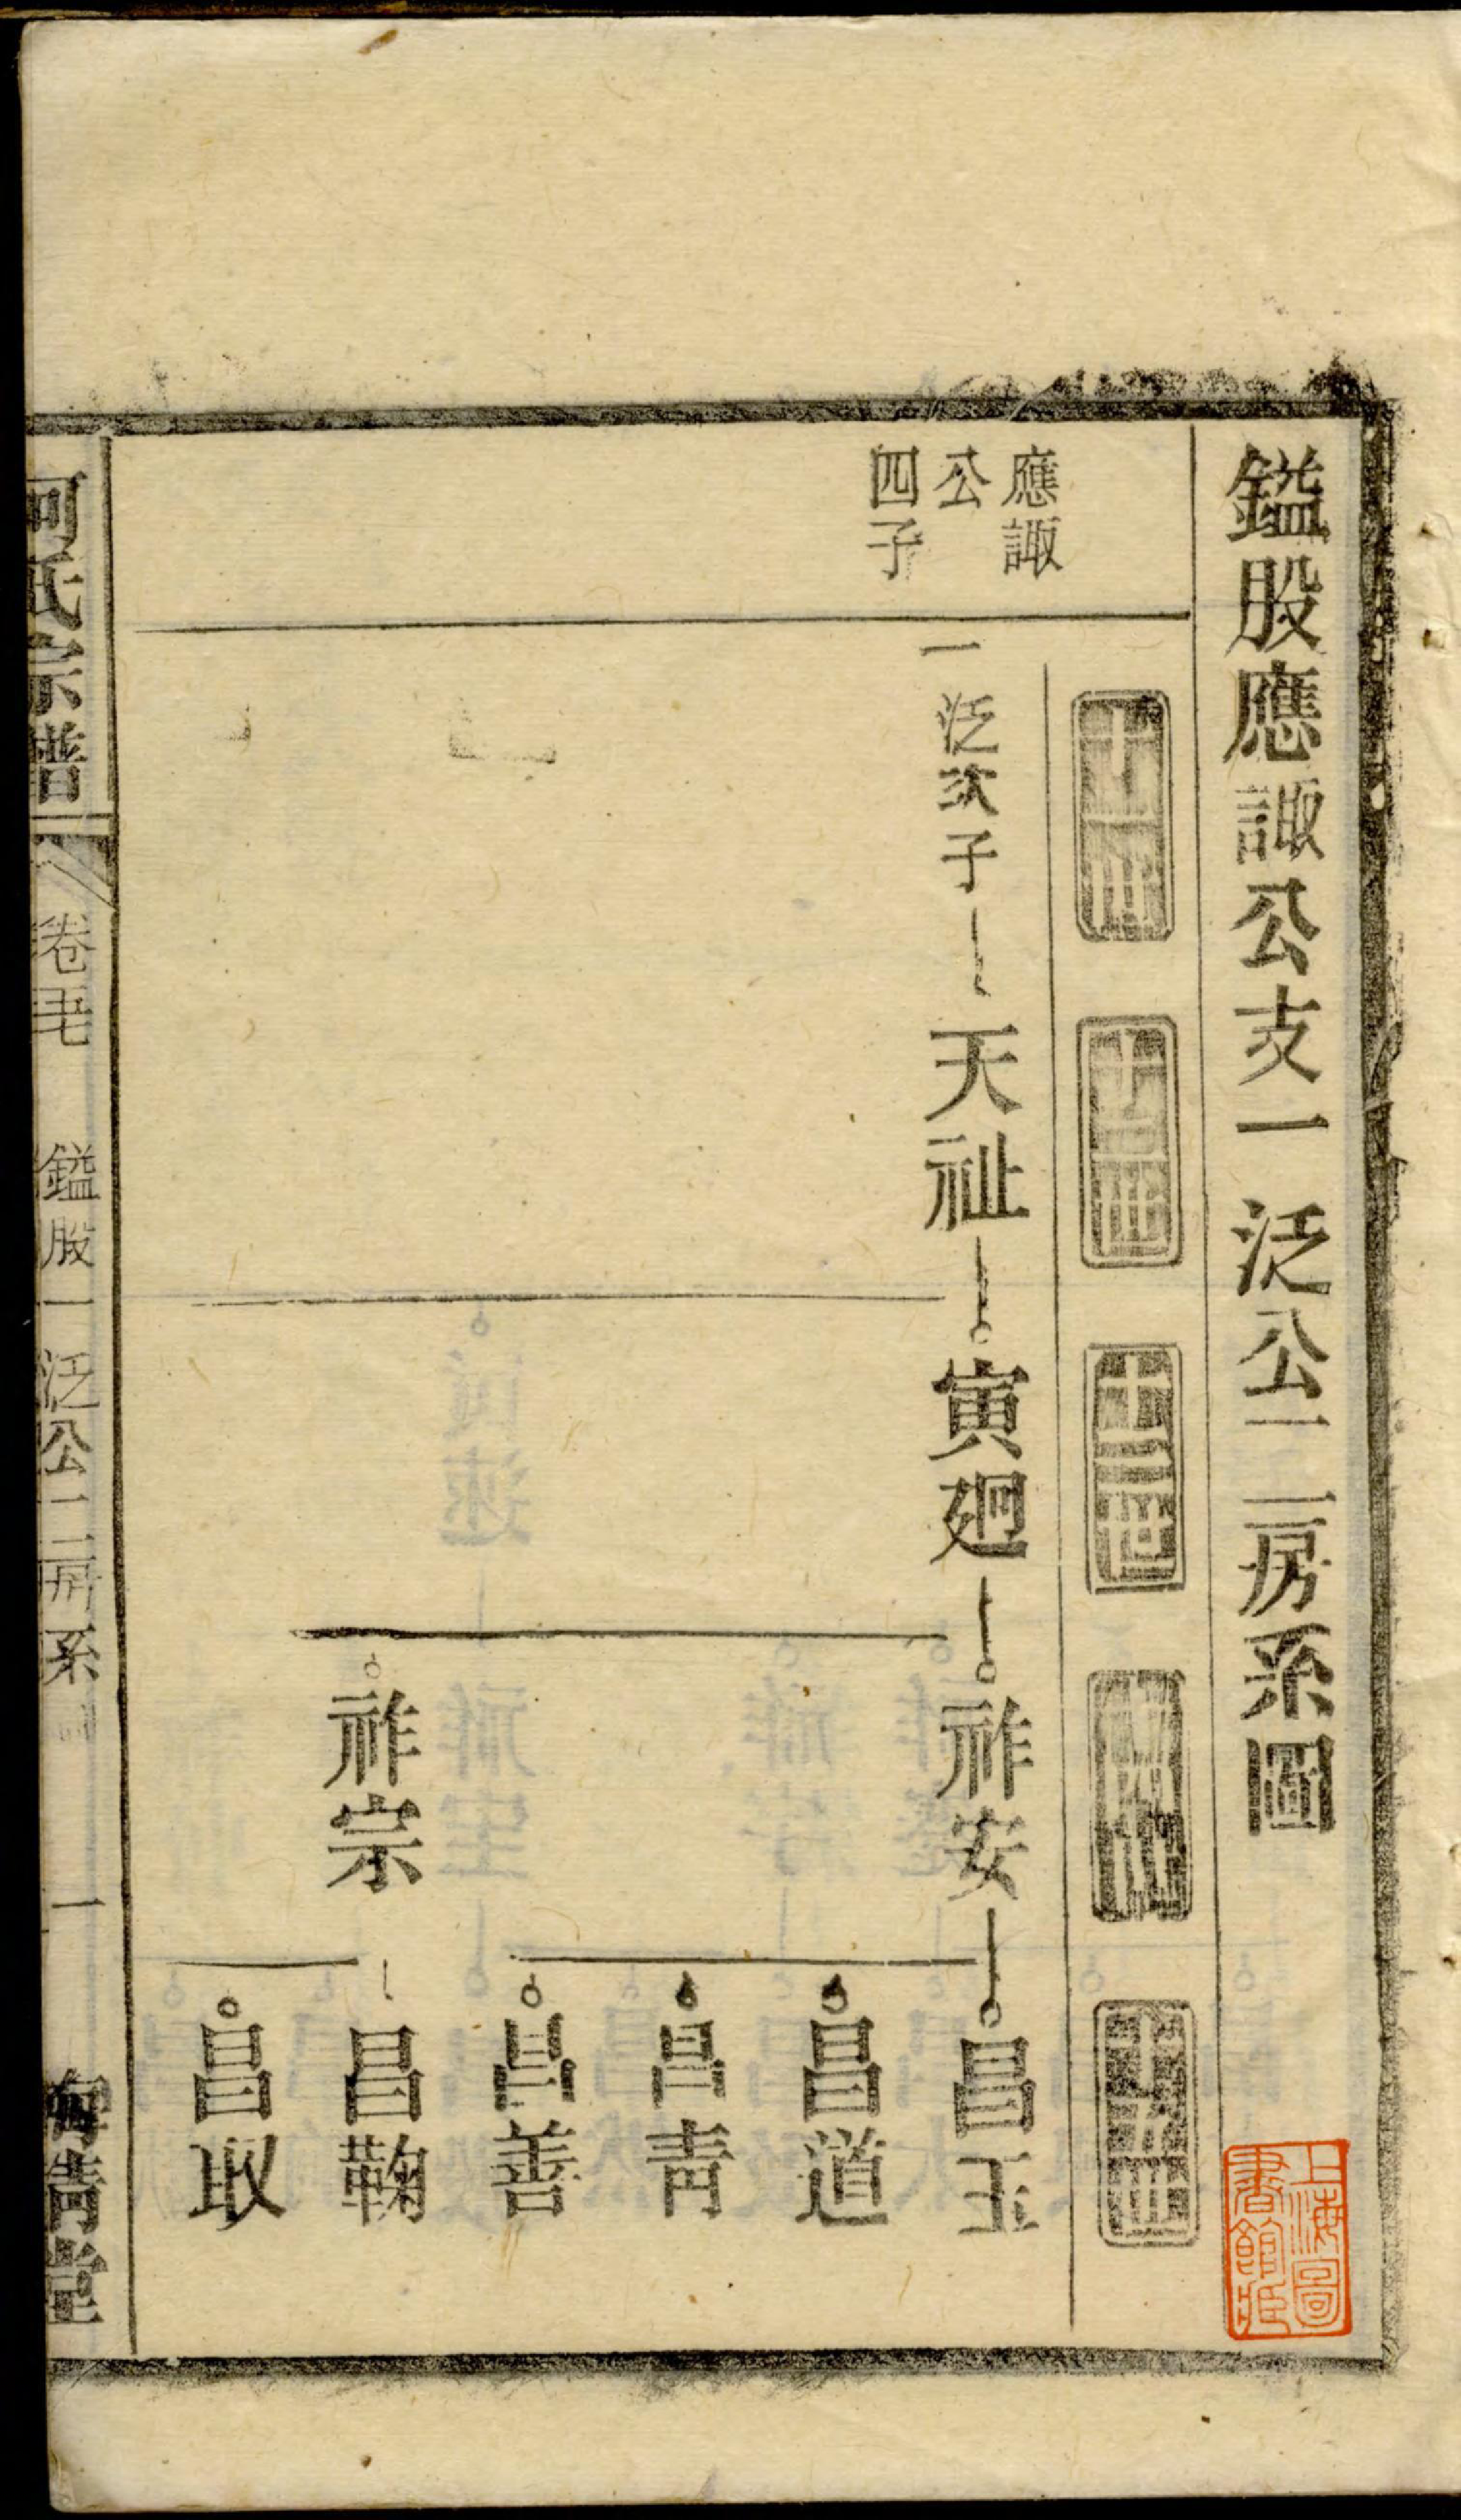 鎰股應諏公支一泛公一二房系圖
上海圖書館藏
十一世
十二世
十三世
十四世
十五世
應諏
公
四子
一泛次子
天祉
寅廻
祚安
昌玉
昌道
昌靑
昌善
祚宗
昌鞠
昌取
何氏宗譜
卷
鎰股一泛公一二房系圖
一
靑堂